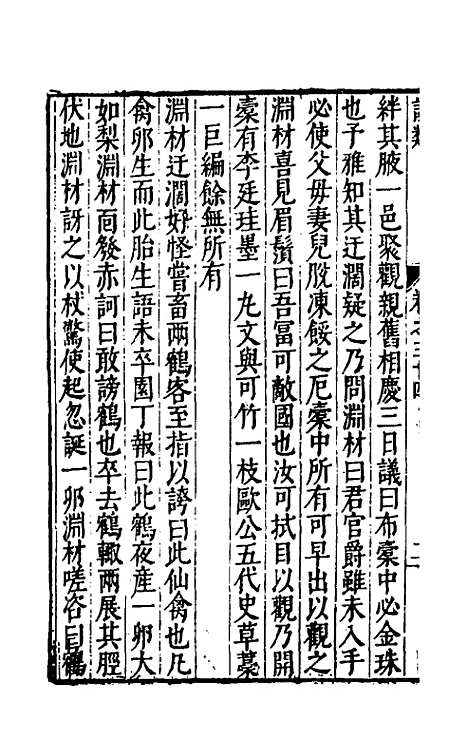 絆其腋一邑聚觀親舊相慶三日議曰布橐中必金珠
也子雅知其迂濶疑之乃問淵材曰君官爵雖未入手
必使父毋妻兒脫凍餒之厄橐中所有可早出以觀之
淵材喜見眉鬚曰吾冨可敵國也汝可拭目以觀乃開
橐有李廷珪墨一丸文與可竹一枝歐公五代史草藁
一巨編餘無所有
淵材迂濶好怪嘗畜兩鶴客至指以誇曰此仙禽也凡
禽卵生而此胎生語未卒園丁報曰此鶴夜産一卵大
如梨淵材面發赤訶曰敢謗鶴也卒去鶴輙兩展其脛
伏地淵材訝之以杖驚使起忽誕一卵淵材嗟咨曰鶴